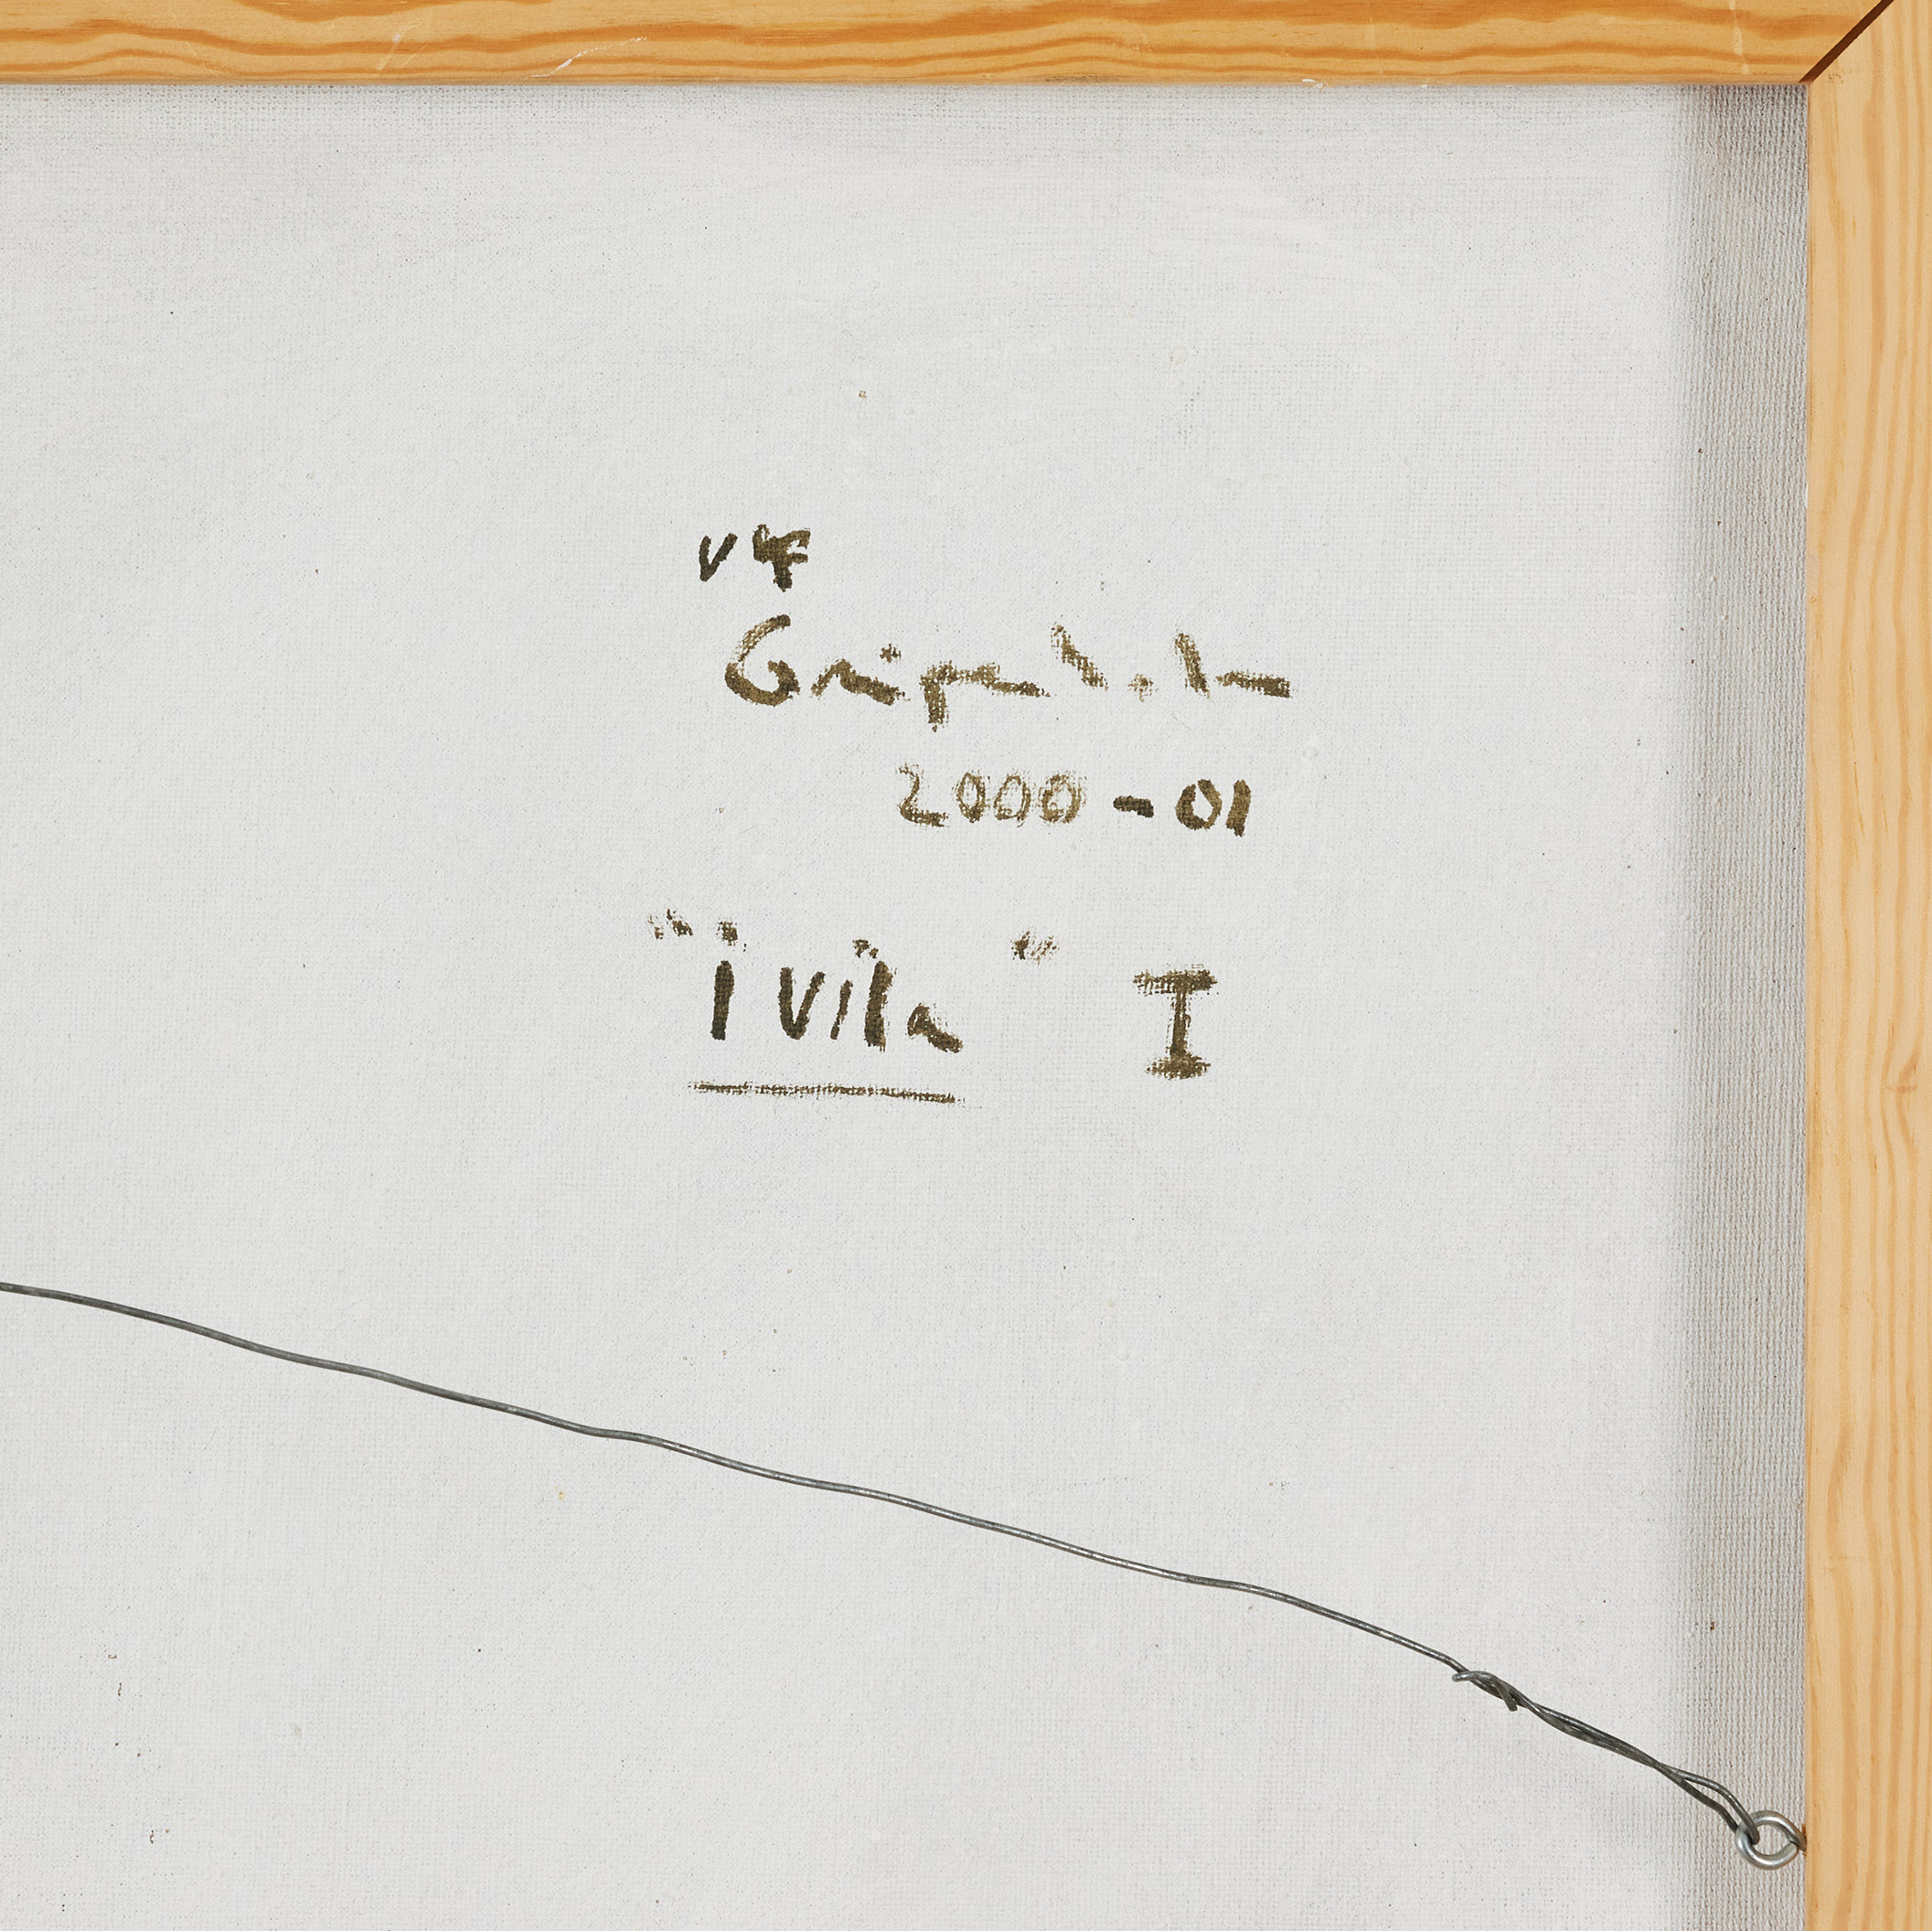 Ulf
Gripenholm
2000-01
"I Vila" I